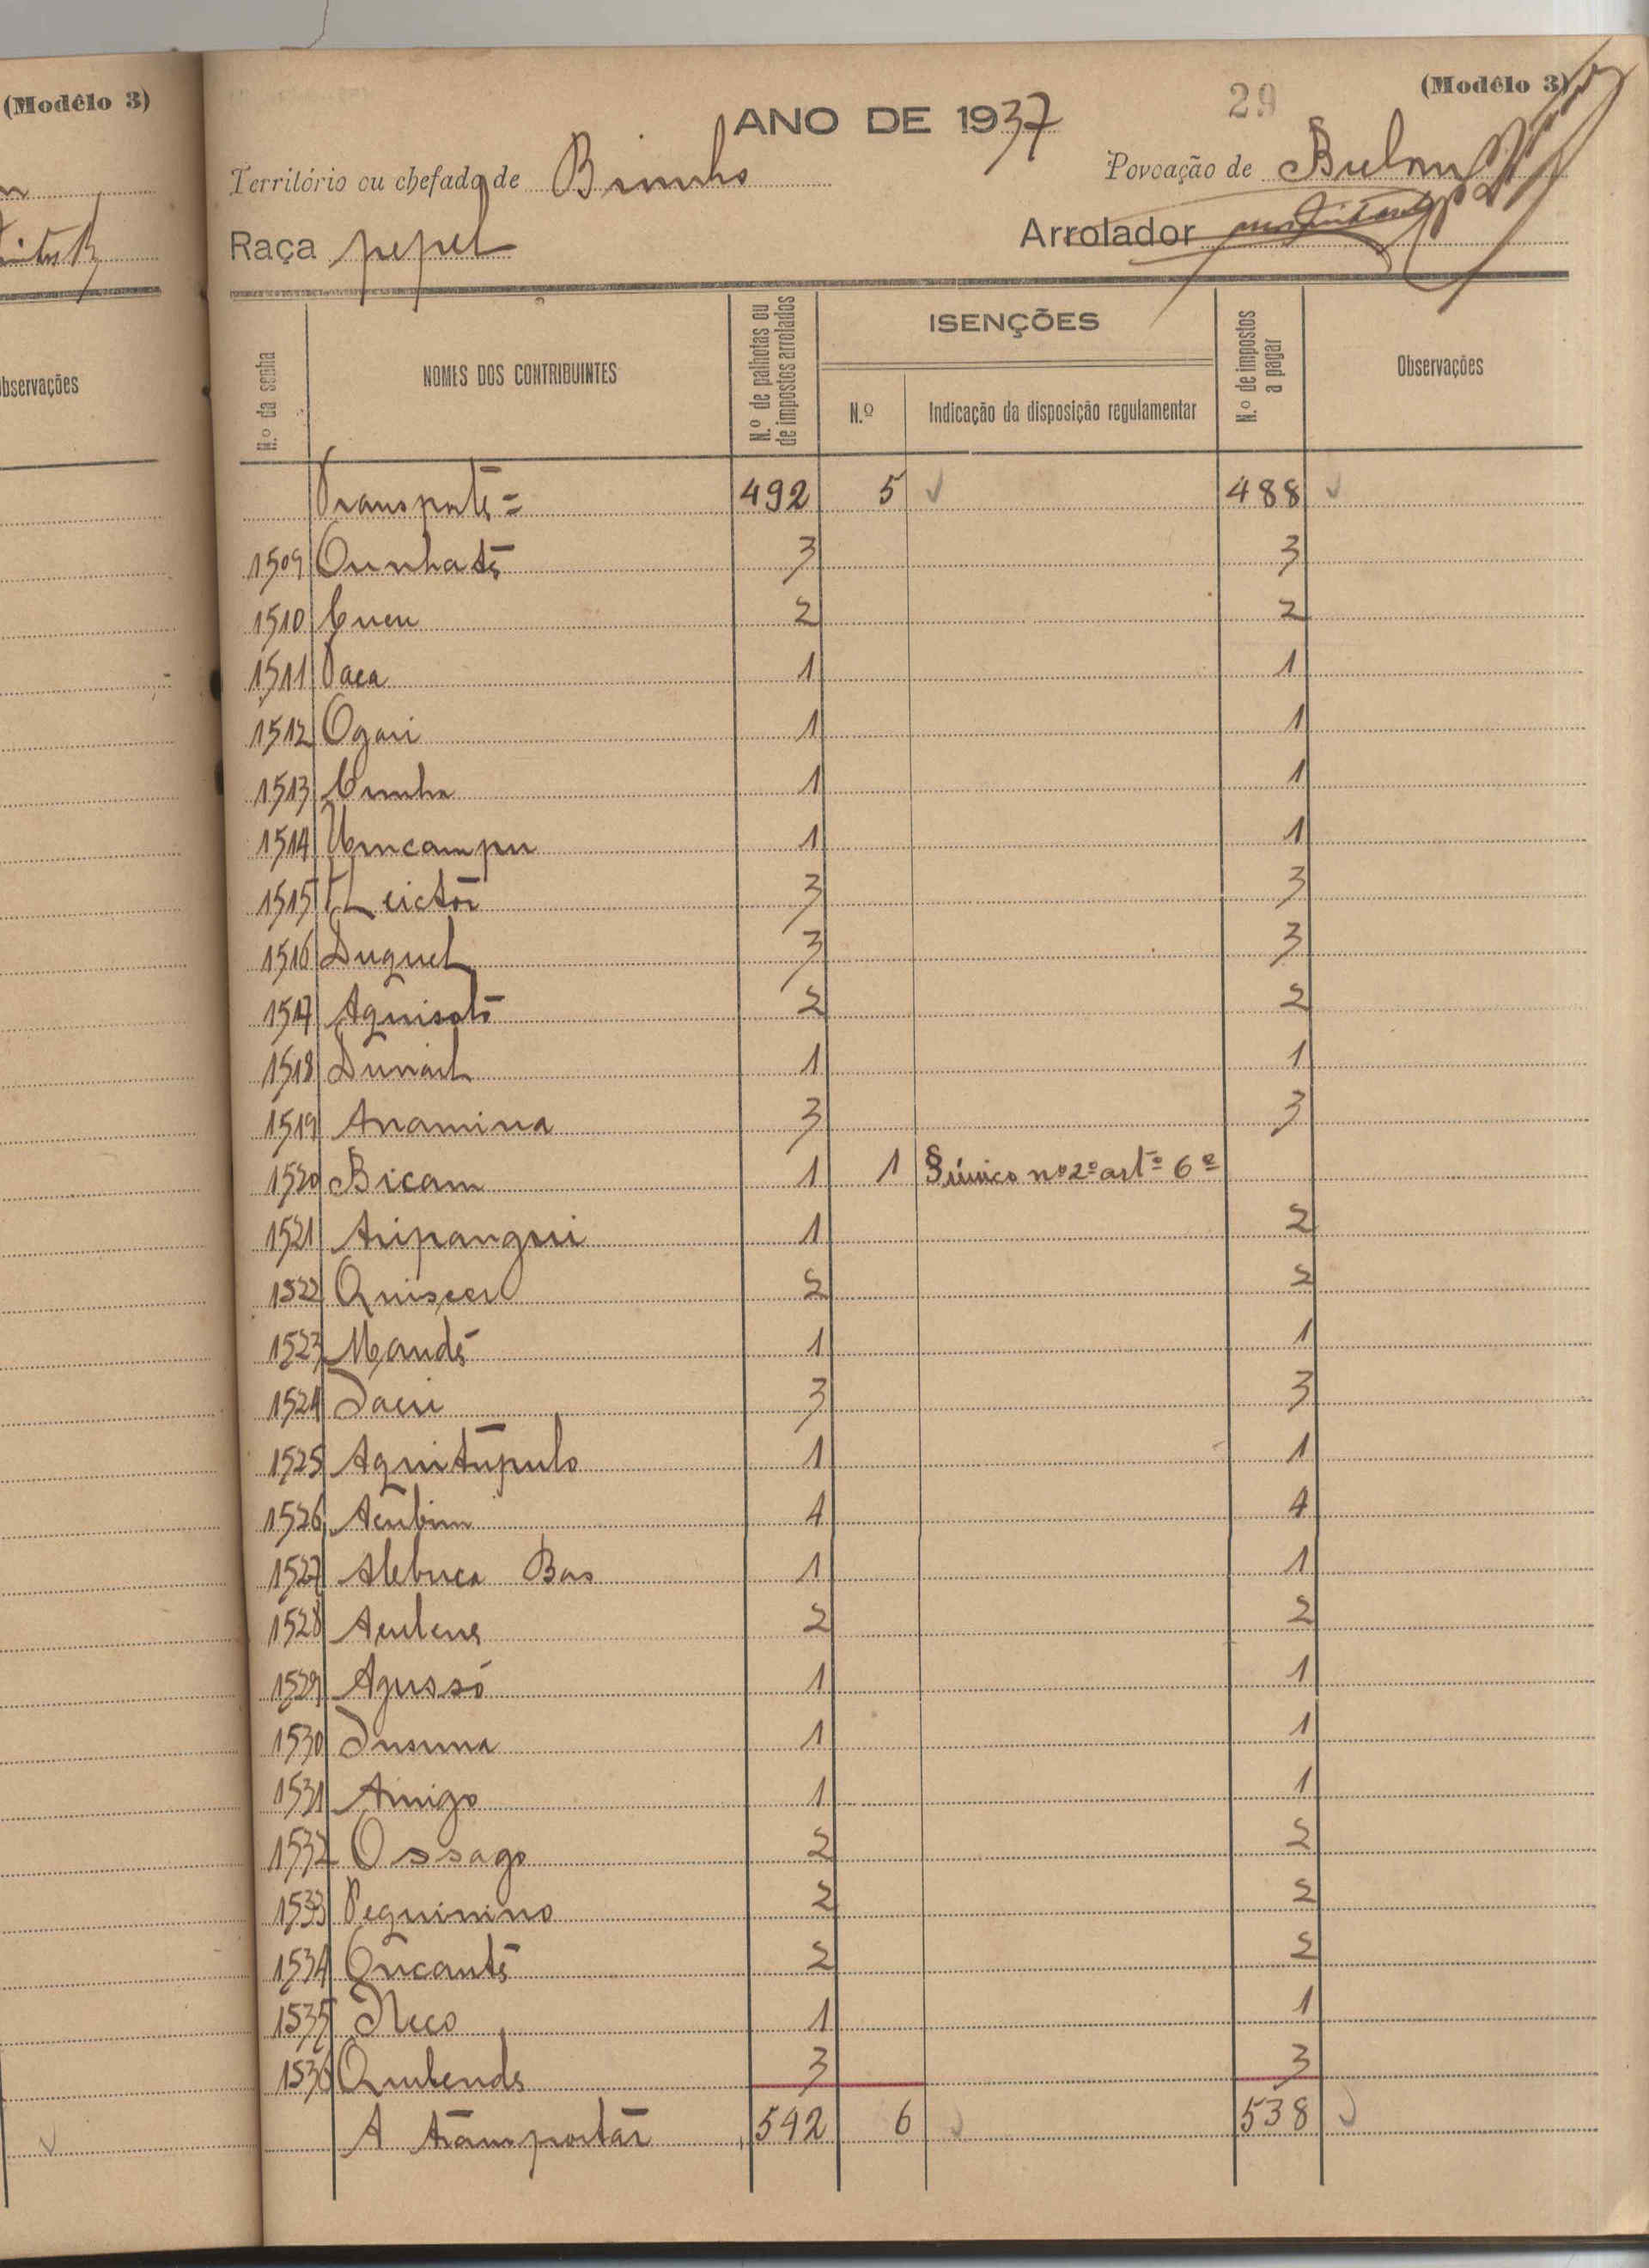 (Modêlo 3)
Observações
29
(Modêlo 3)
ANO DE 1937
Território ou chefado de Bimbo
Povoação de
Raça pepel
Arrolador
N.º da senha
NOMES DOS CONTRIBUINTES
N.º de palhotas ou de impostos arrolados
ISENÇÕES
N.º
Indicação da disposição regulamentar
N.º de impostos a pagar
Observações
Transporte = 492 5 488
1509 Ounhatê 3 3
1510 Cucu 2 2
1511 Paca 1 1
1512 Ogari 1 1
1513 Cunha 1 1
1514 Umcampu 1 1
1515 3 3
1516 Duquel 3 3
1517 Aquisotó 2 2
1518 1 1
1519 Anamina 3 3
1520 Bicam 1 1 § único nº 2º artº 6º
1521 Aripangui 1 2
1522 2 2
1523 Mandé 1 1
1524 3 3
1525 Aquitúpulo 1 1
1526 Acubim 4 4
1527 Alebuca 1 1
1528 2 2
1529 Agussó 1 1
1530 1 1
1531 Amigo 1 1
1532 Ossago 2 2
1533 Pequinino 2 2
1534 2 2
1535 Neco 1 1
1536 3 3
A transportar 542 6 538